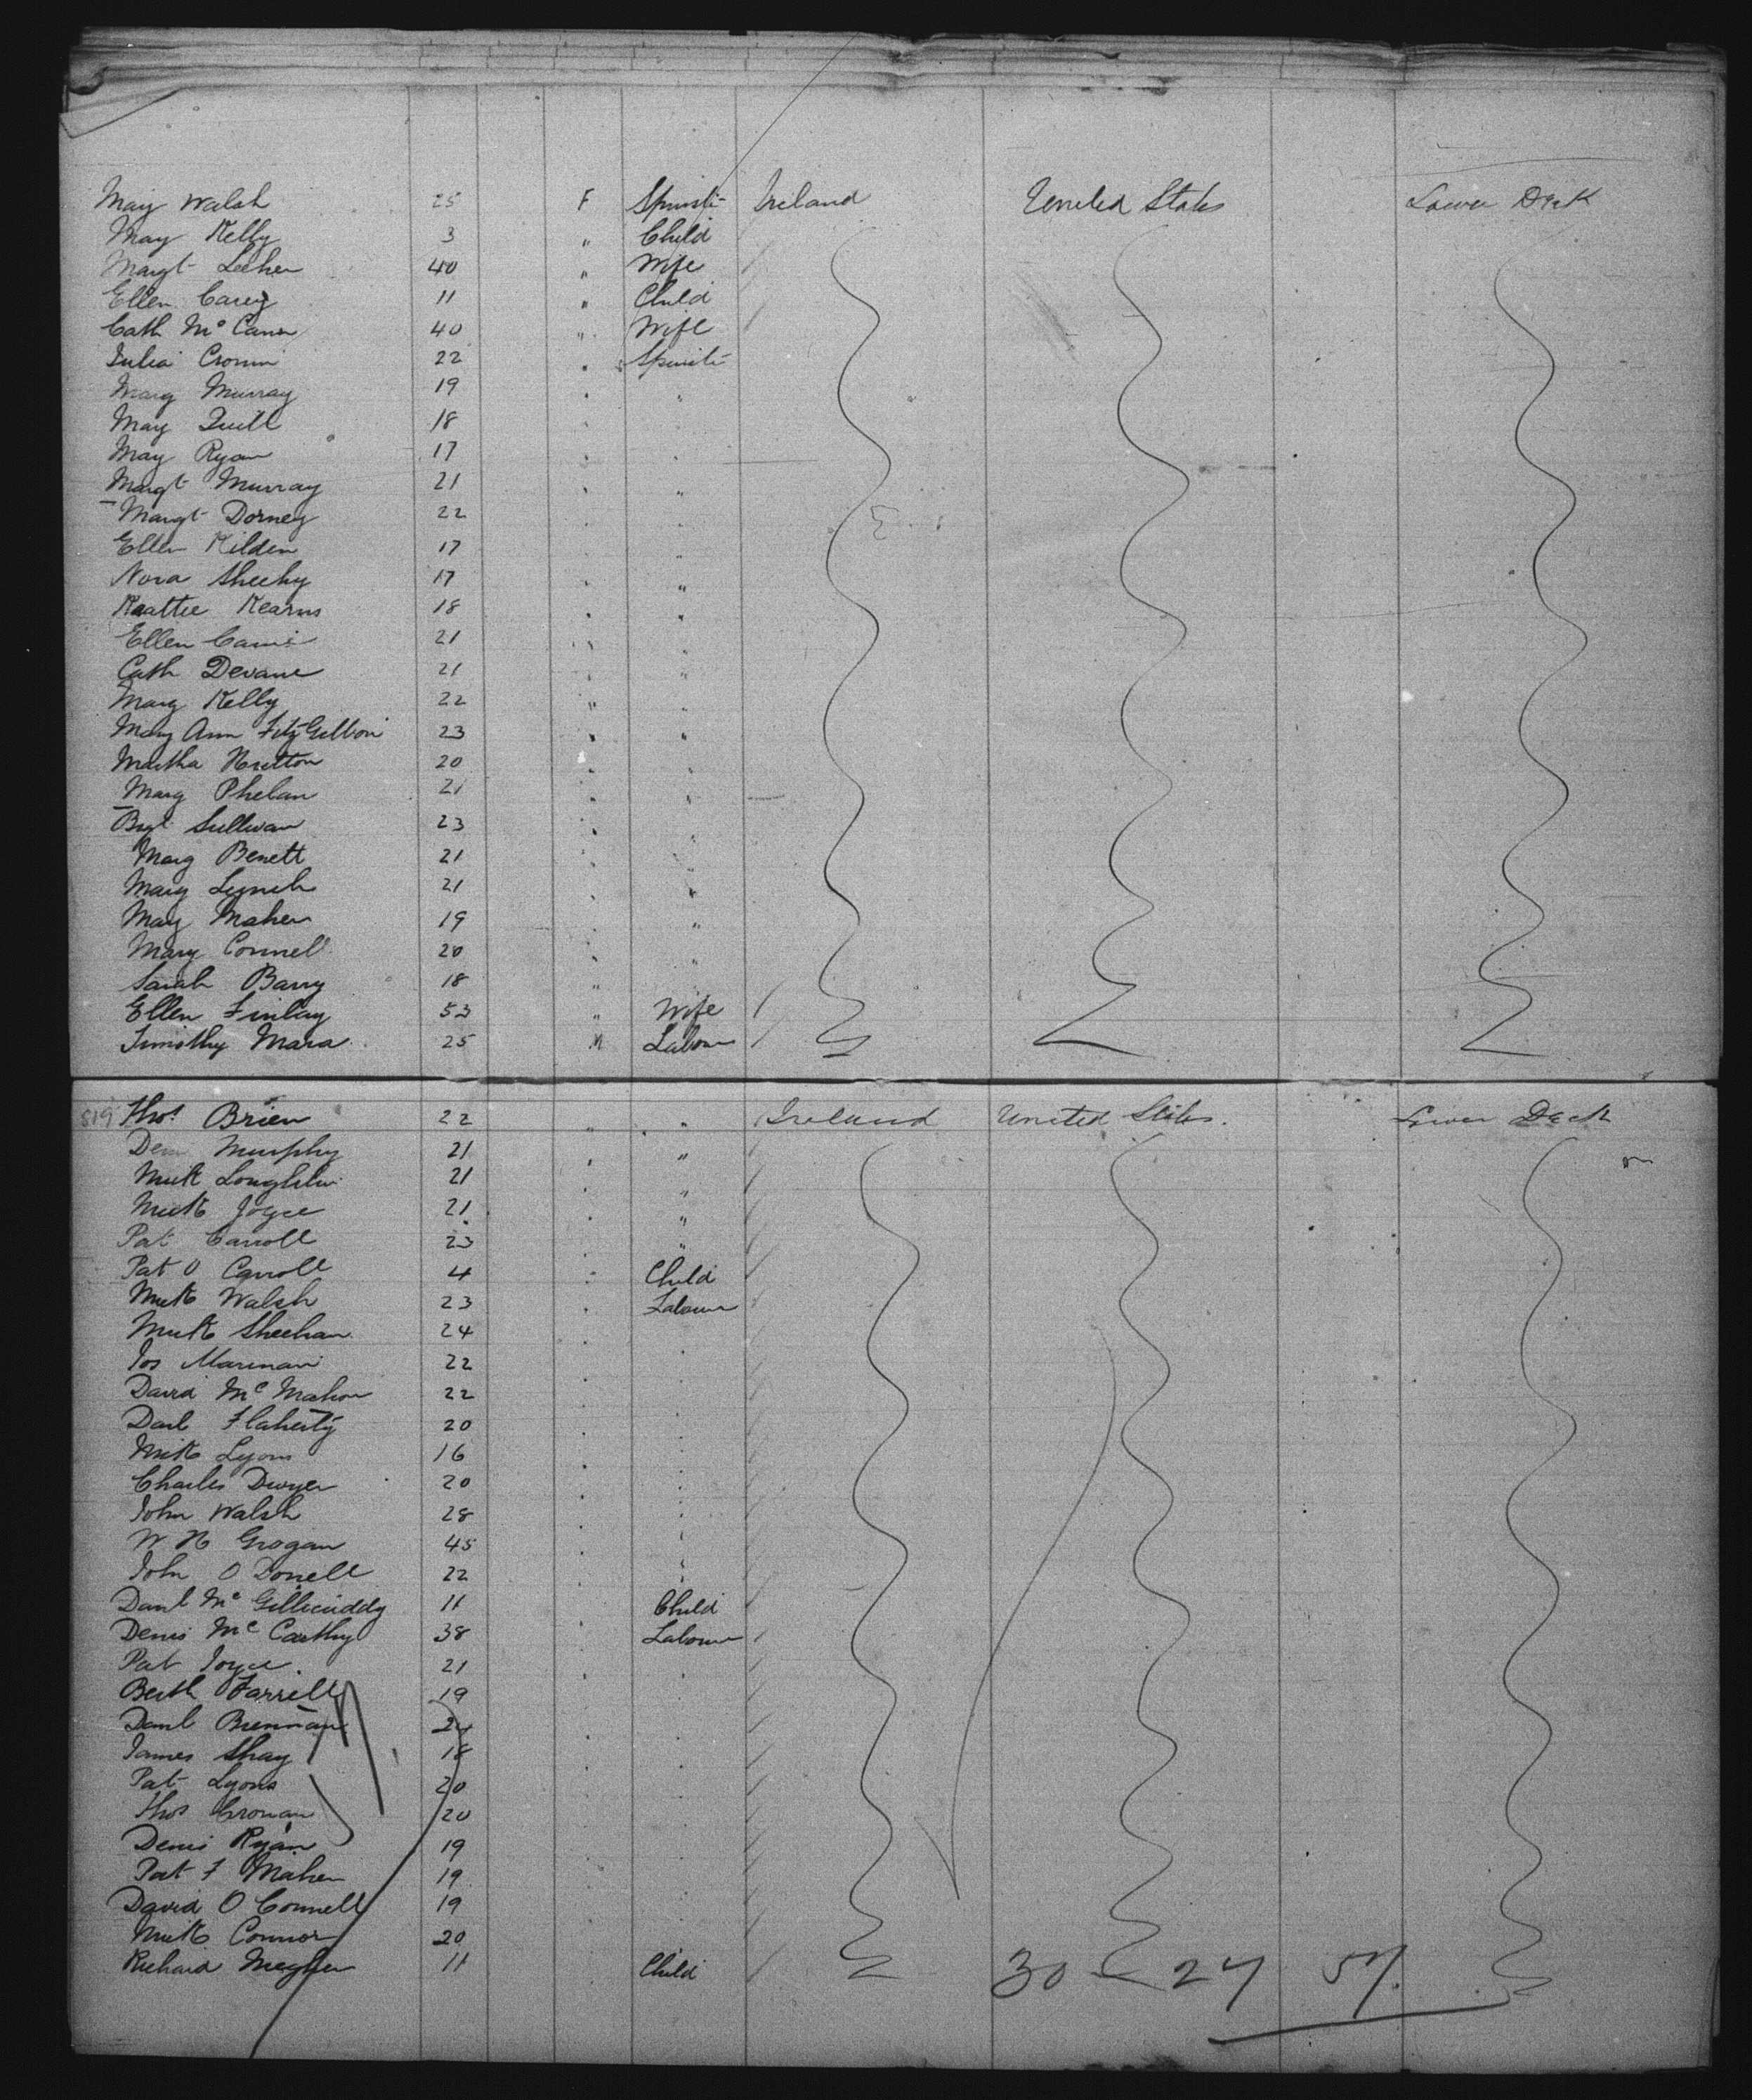 Mary Walsh 25 F Spinstr Ireland United States Lower Deck
Mary Kelly 3 " Child
Margt Leeher 40 " Wife
Ellen Carey 11 " Child
Cath Mc Cann 40 " Wife
Julia Cronin 22 " Spinstr
Mary Murray 19 " "
Mary Quill 18 " "
Mary Ryan 17 " "
Margt Murray 21 " "
Margt Dorney 22 " "
Ellen Kilden 17 " "
Nora Sheehy 17 " "
Kaattie Kearns 18 " "
Ellen 21 " "
Cath Devane 21 " "
Mary Kelly 22 " "
Mary Ann FitzGibbon 23 " "
Martha Hutton 20 " "
Mary Phelan 21 " "
Bgt Sullivan 23 " "
Mary Benett 21 " "
Mary Lynch 21 " "
Mary Maher 19 " "
Mary Connell 20 " "
Sarah Barry 18 "
Ellen Finlay 53 " Wife
Timothy Mara 25 M Labour
819 Thos Brien 22 " " Ireland United States. Lower Deck
Den Murphy 21 " "
Mick Loughlin 21 " "
Mick Joyce 21 " "
Pat Carroll 23 " "
Pat O Carroll 4 " Child
Mick Walsh 23 " Labour
Mick Sheehan 24 " "
Jos Marinan 22 " "
David Mc Mahon 22 " "
Danl Flaherty 20 " "
Mick Lyons 16 " "
Charles Dwyer 20 " "
John Walsh 28 " "
W H Grogan 45 " "
John O Donell 22 " "
Danl Mc Gillicuddy 11 " Child
Denis Mc Carthy 38 " Labour
Pat Joyce 21 " "
Barth Farrell 19 " "
Danl Brennan 24 " "
James Shay 18 " "
Pat Lyons 20 " "
Thos Cronan 20 " "
Denis Ryan 19 " "
Pat F Maher 19 " "
David O Connell 19 " "
Mick Connor 20 " "
Richard Megher 11 " Child
30 27 57.